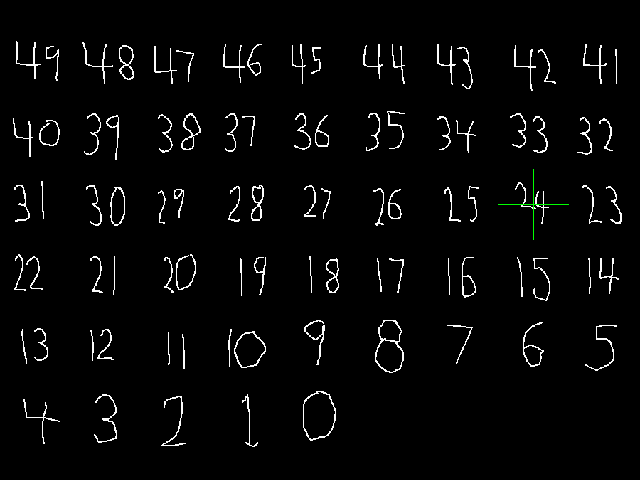 49 48 47 46 45 44 43 42 41
40 39 38 37 36 35 34 33 32
31 30 29 28 27 26 25 24 23
22 21 20 19 18 17 16 15 14
13 12 11 10 9 8 7 6 5
4 3 2 1 0